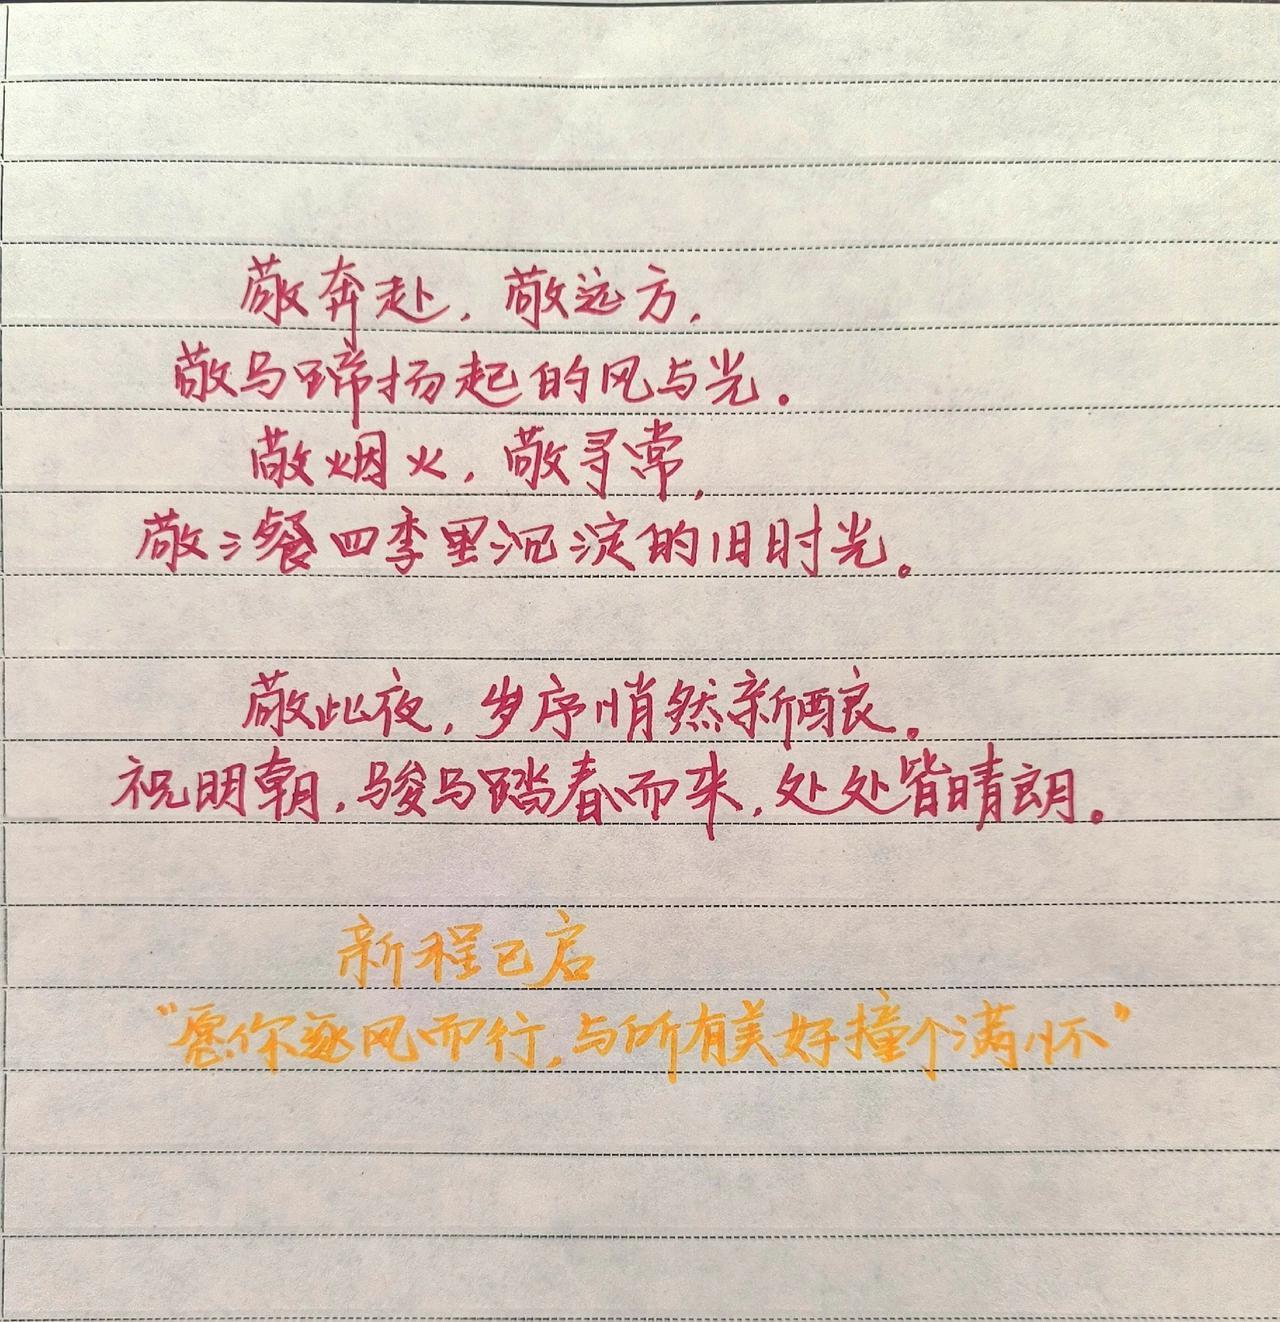 敬奔赴，敬远方，
敬马蹄扬起的风与光。
敬烟火，敬寻常，
敬三餐四季里沉淀的旧时光。
敬此夜，岁序悄然新酿。
祝明朝，骏马踏春而来，处处皆晴朗。
新程已启
“愿你逐风而行，与所有美好撞个满怀”